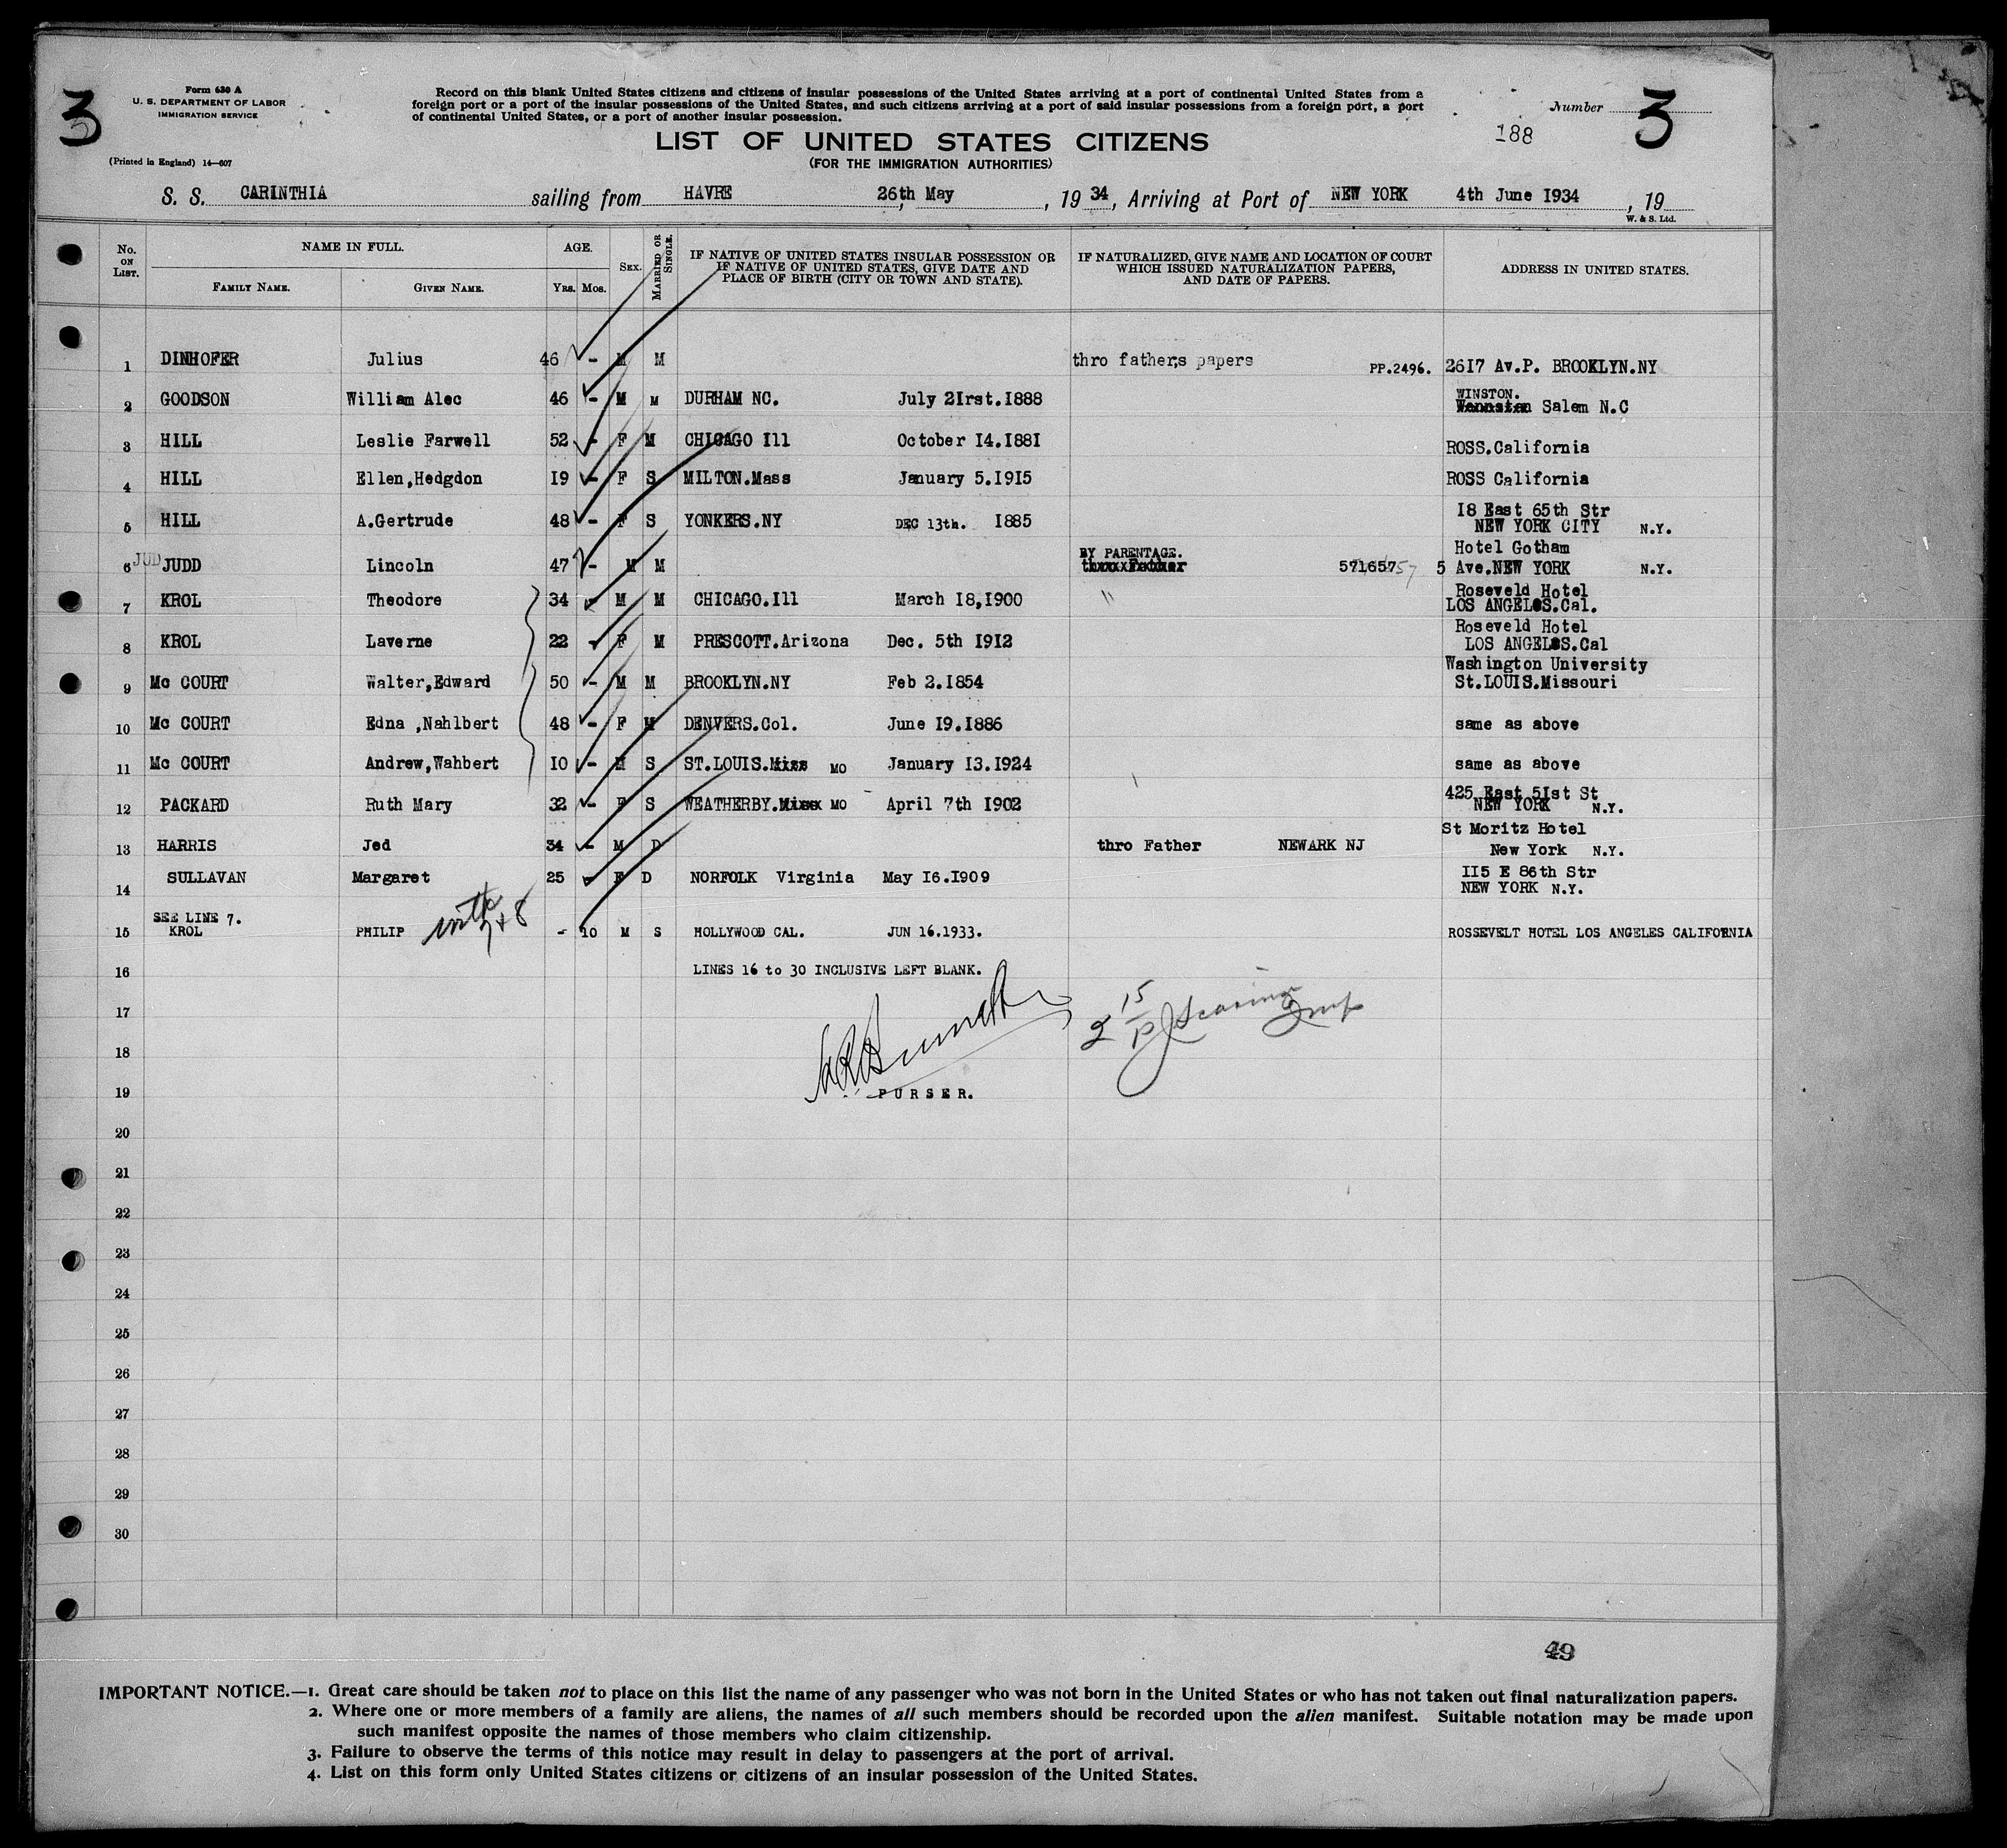 3
Form 630 A
U. S. DEPARTMENT OF LABOR
IMMIGRATION SERVICE
(Printed in England) 14—607
Record on this blank United States citizens and citizens of insular possessions of the United States arriving at a port of continental United States from a
foreign port or a port of the insular possessions of the United States, and such citizens arriving at a port of said insular possessions from a foreign port, a port
of continental United States, or a port of another insular possession.
Number 3
188
LIST OF UNITED STATES CITIZENS
(FOR THE IMMIGRATION AUTHORITIES)
S. S. CARINTHIA sailing from HAVRE 26th May, 19 34, Arriving at Port of NEW YORK 4th June I934, 19
W. & S. Ltd.
No. ON LIST. NAME IN FULL. FAMILY NAME. GIVEN NAME. AGE. YRS. MOS. SEX. MARRIED OR SINGLE. IF NATIVE OF UNITED STATES INSULAR POSSESSION OR IF NATIVE OF UNITED STATES, GIVE DATE AND PLACE OF BIRTH (CITY OR TOWN AND STATE). IF NATURALIZED, GIVE NAME AND LOCATION OF COURT WHICH ISSUED NATURALIZATION PAPERS, AND DATE OF PAPERS. ADDRESS IN UNITED STATES.
1 DINHOFER Julius 46 - M M thro father,s papers PP.2496. 2617 Av.P. BROOKLYN.NY
2 GOODSON William Alec 46 - M M DURHAM NC. July 2Irst.I888 WINSTON. Salem N.C
3 HILL Leslie Farwell 52 - F M CHICAGO Ill October I4.I88I ROSS.California
4 HILL Ellen,Hedgdon I9 - F S MILTON.Mass January 5.I9I5 ROSS California
5 HILL A.Gertrude 48 - F S YONKERS.NY DEC 13th. I885 I8 East 65th Str NEW YORK CITY N.Y.
6 JUD JUDD Lincoln 47 - M M BY PARENTAGE. thxxxxFather 571657 57 Hotel Gotham 5 Ave.NEW YORK N.Y.
7 KROL Theodore 34 - M M CHICAGO.Ill March I8,I900 " Roseveld Hotel LOS ANGELOS.Cal.
8 KROL Laverne 22 - F M PRESCOTT.Arizona Dec. 5th I9I2 Roseveld Hotel LOS ANGELOS.Cal
9 Mc COURT Walter,Edward 50 - M M BROOKLYN.NY Feb 2.I854 Washington University St.LOUIS.Missouri
10 Mc COURT Edna ,Nahlbert 48 - F M DENVERS.Col. June I9.I886 same as above
11 Mc COURT Andrew,Wahbert I0 - M S ST.LOUIS.Miss MO January I3.I924 same as above
12 PACKARD Ruth Mary 32 - F S WEATHERBY.Miss MO April 7th I902 425 East 5Ist St NEW YORK N.Y.
13 HARRIS Jed 34 - M D thro Father NEWARK NJ St Moritz Hotel New York N.Y.
14 SULLAVAN Margaret 25 - F D NORFOLK Virginia May I6.I909 II5 E 86th Str NEW YORK N.Y.
15 SEE LINE 7. KROL PHILIP with 7+8 - 10 M S HOLLYWOOD CAL. JUN 16.1933. ROSSEVELT HOTEL LOS ANGELES CALIFORNIA
16 LINES 16 to 30 INCLUSIVE LEFT BLANK.
17
18
19 PURSER.
20
21
22
23
24
25
26
27
28
29
30
49
IMPORTANT NOTICE.—1. Great care should be taken not to place on this list the name of any passenger who was not born in the United States or who has not taken out final naturalization papers.
2. Where one or more members of a family are aliens, the names of all such members should be recorded upon the alien manifest. Suitable notation may be made upon
such manifest opposite the names of those members who claim citizenship.
3. Failure to observe the terms of this notice may result in delay to passengers at the port of arrival.
4. List on this form only United States citizens or citizens of an insular possession of the United States.